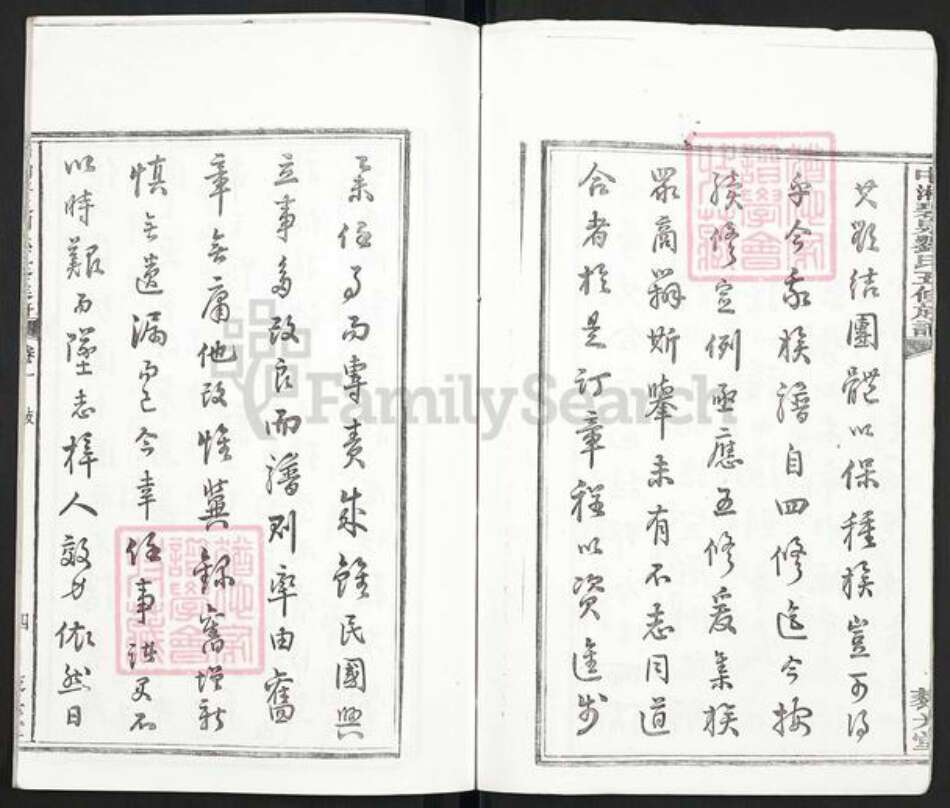 其欲結團體以保種族豈可得
乎今我族譜自四修迄今按
續修定例亟應五修爰集族
眾商辦斯舉未有不志同道
合者於是訂章程以資進步
任事而專責成雖民國興
立事多改良而譜則率由舊
章無庸他改惟冀錄舊增新
慎無遺漏已今幸任事諸君不
以時艱而墜志梓人效力依然日
劉氏五修族譜
卷一
四
FamilySearch